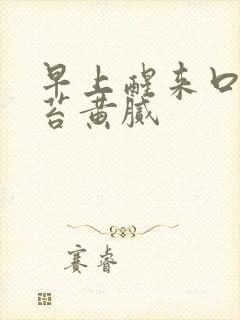 早上醒来口
苔黄腻
赛睿